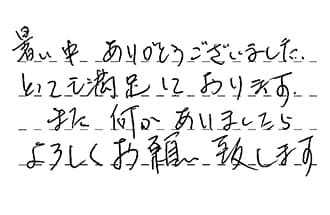 暑い中 ありがとうございました.
とても満足しております.
また 何か ありましたら
よろしくお願い致します